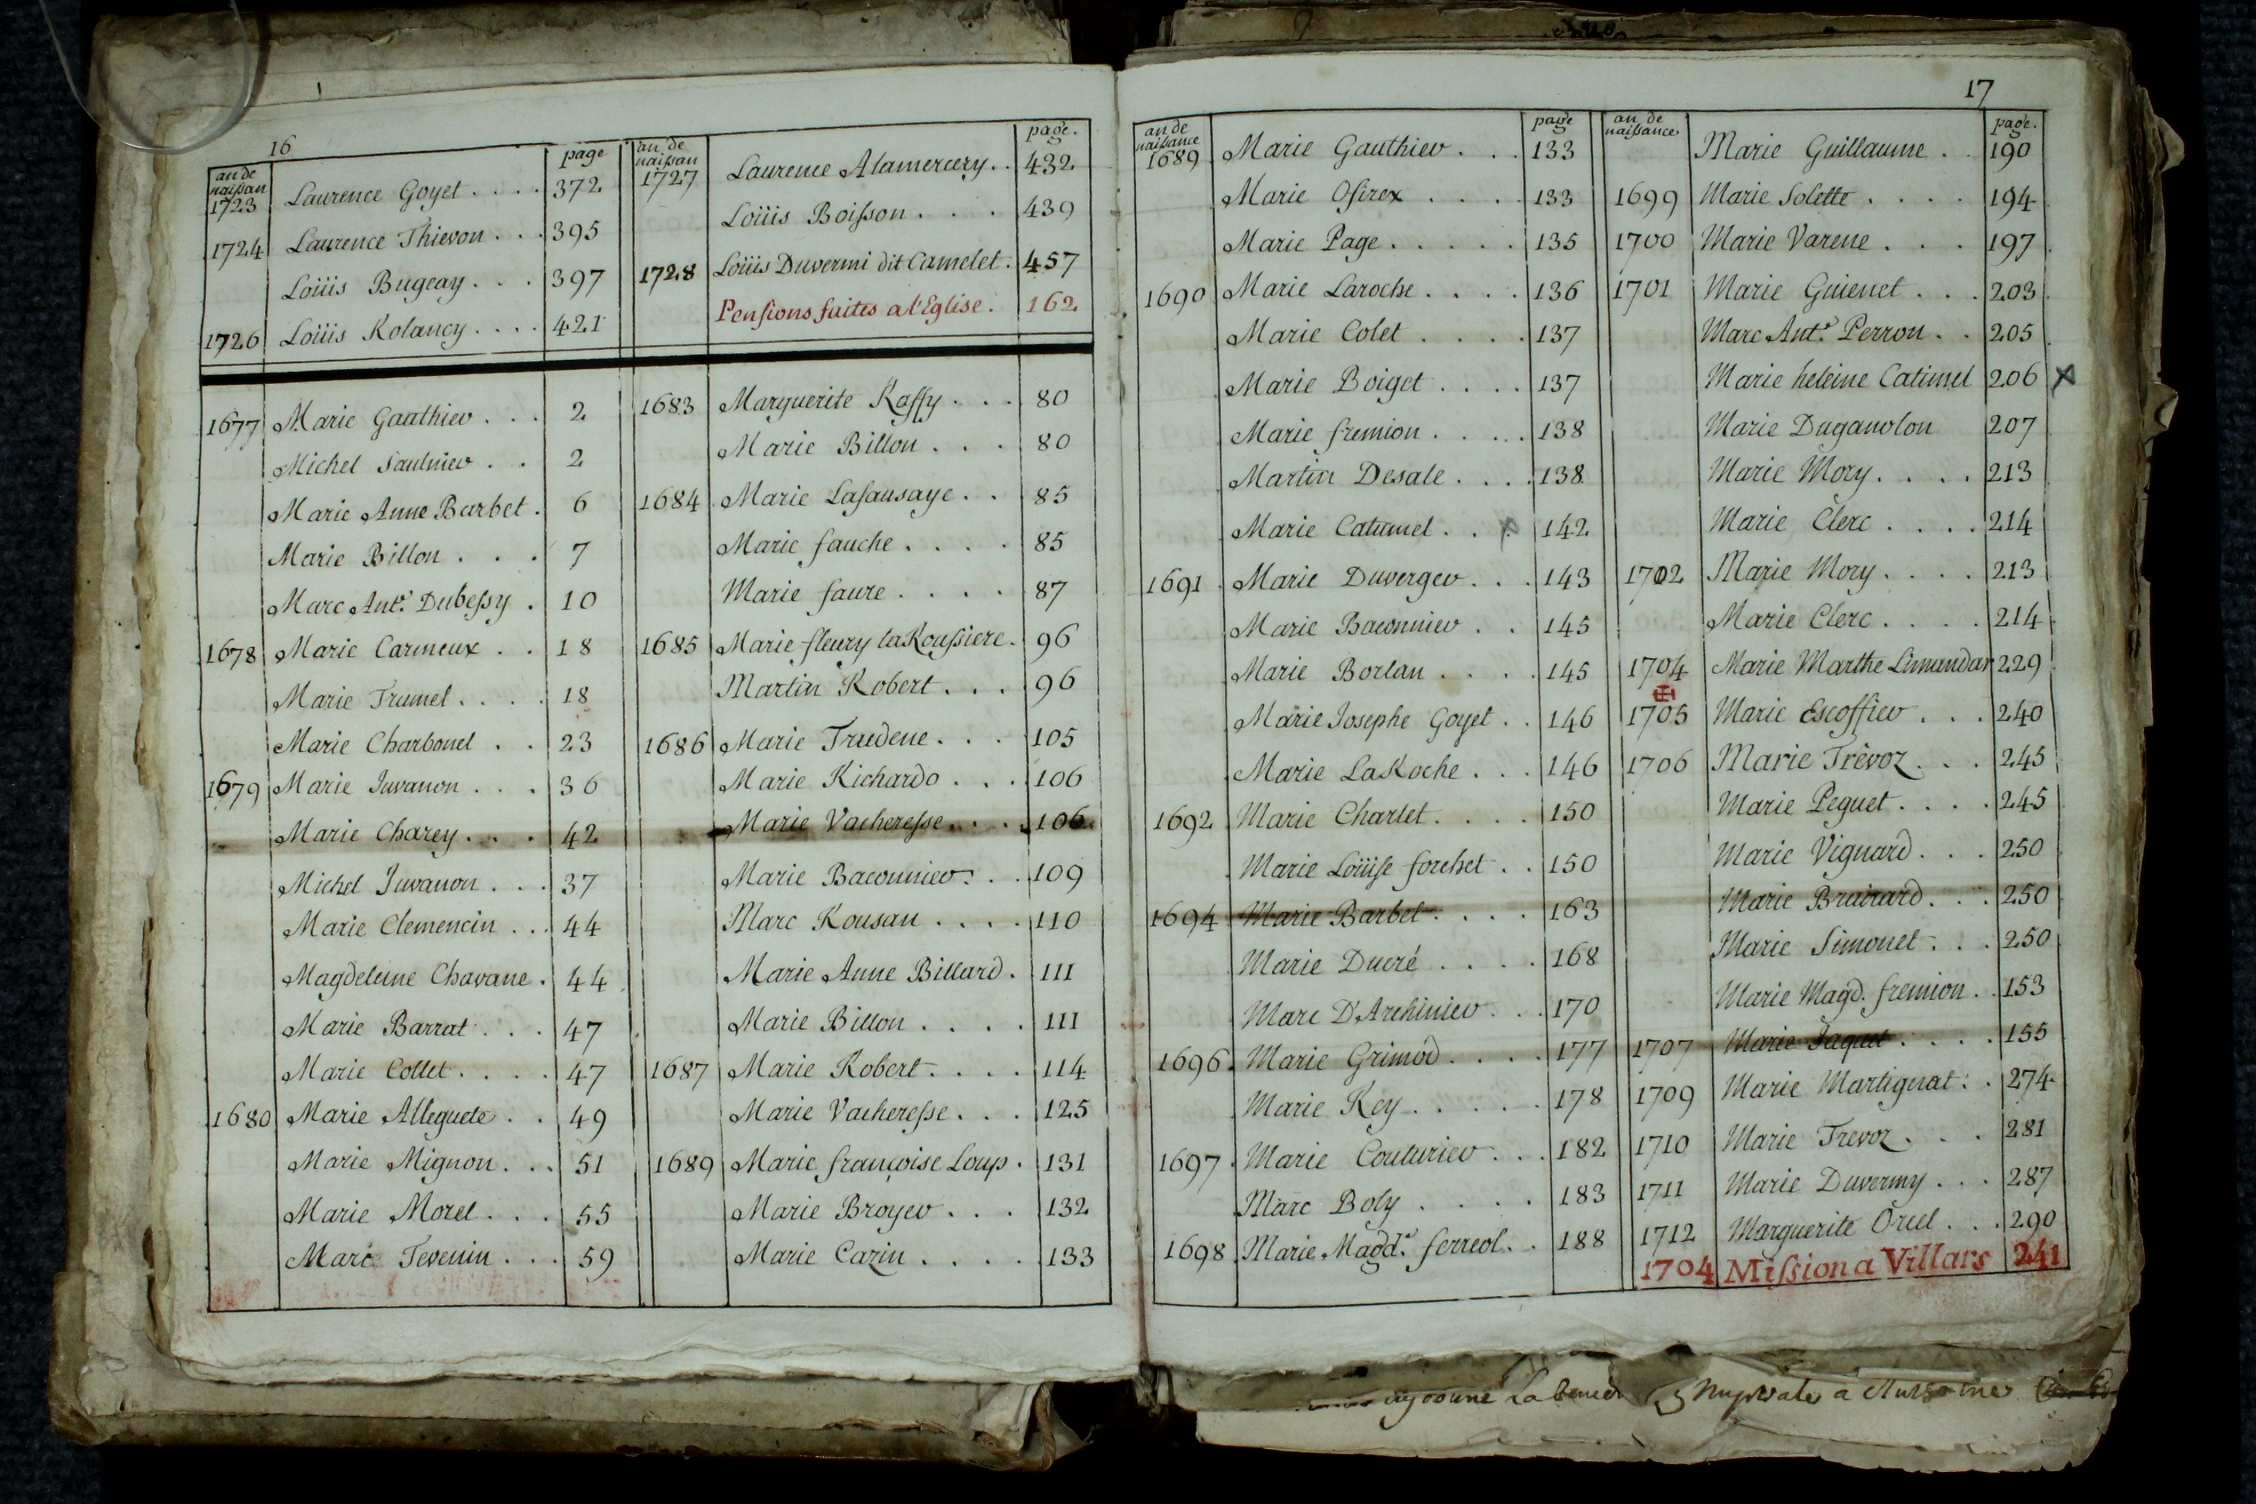 16
an de naissan page
1723 Laurence Goyet . . . . 372
1724 Laurence Thievon . . . 395
Loüis Bugeay . . . 397
1726 Loüis Rolancy . . . . 421
an de naissan page.
1727 Laurence Alamercery . . 432
Loüis Boisson . . . 439
1728 Loüis Duvermi dit Camelet . 457
Pensions faites a l'Eglise . 162
1677 Marie Gauthier . . . 2
Michel Saulnier . . 2
Marie Anne Barbet . 6
Marie Billon . . . 7
Marc Ant.e Dubessy . 10
1678 Marie Carmeux . . 18
Marie Trumel . . . . 18
Marie Charbonel . . 23
1679 Marie Juvanon . . . 36
Marie Charey . . . 42
Michel Juvanon . . . 37
Marie Clemencin . . . 44
Magdeleine Chavane . 44
Marie Barrat . . . 47
Marie Collet . . . . 47
1680 Marie Alleguete . . 49
Marie Mignon . . . 51
Marie Morel . . . 55
Marc Tevenin . . . 59
1683 Marguerite Raffy . . . 80
Marie Billon . . . 80
1684 Marie Lasausaye . . 85
Marie fauche . . . . 85
Marie faure . . . . 87
1685 Marie fleury laRoussiere . 96
Martin Robert . . . 96
1686 Marie Trudene . . . 105
Marie Richardo . . . 106
Marie Vacheresse . . . 106
Marie Baconnier . . . 109
Marc Rousan . . . . 110
Marie Anne Billard . 111
Marie Billon . . . . 111
1687 Marie Robert . . . . 114
Marie Vacheresse . . . 125
1689 Marie françoise Loup . 131
Marie Broyer . . . 132
Marie Cazin . . . . 133
17
an de naissance page
1689 Marie Gauthier . . . 133
Marie Osirex . . . . 133
Marie Page . . . . . 135
1690 Marie Laroche . . . . 136
Marie Colet . . . . 137
Marie Boiget . . . . 137
Marie fremion . . . . 138
Martin Desale . . . . 138
Marie Catimel . . . 142
1691 Marie Duverger . . . 143
Marie Baconnier . . 145
Marie Borlan . . . . 145
Marie Josephe Goyet . . 146
Marie LaRoche . . . 146
1692 Marie Charlet . . . . 150
Marie Loüise forchet . . 150
1694 Marie Barbet . . . . 163
Marie Ducré . . . . 168
Marc D'Archinier . . . 170
1696 Marie Grimod . . . . 177
Marie Rey . . . . . 178
1697 Marie Couturier . . . 182
Marc Boly . . . . 183
1698 Marie Magd.e ferreol . . 188
an de naissance page.
Marie Guillaume . . 190
1699 Marie Solette . . . . 194
1700 Marie Varene . . . 197
1701 Marie Guienet . . . 203
Marc Ant.e Perron . . 205
Marie heleine Catimel 206 x
Marie Duganolon 207
Marie Mory . . . . 213
Marie Clerc . . . . 214
1702 Marie Mory . . . . 213
Marie Clerc . . . . 214
1704 Marie Marthe Limandar 229
1705 Marie Escoffier . . . 240
1706 Marie Trèvoz . . . 245
Marie Peguet . . . . 245
Marie Vignard . . . 250
Marie Brairard . . . 250
Marie Simonet . . . 250
Marie Magd. fremion . . 153
1707 Marie Jaquet . . . . 155
1709 Marie Martignat . . 274
1710 Marie Trevoz . . . 281
1711 Marie Duvermy . . . 287
1712 Marguerite Orcel . . . 290
1704 Mission a Villars 241